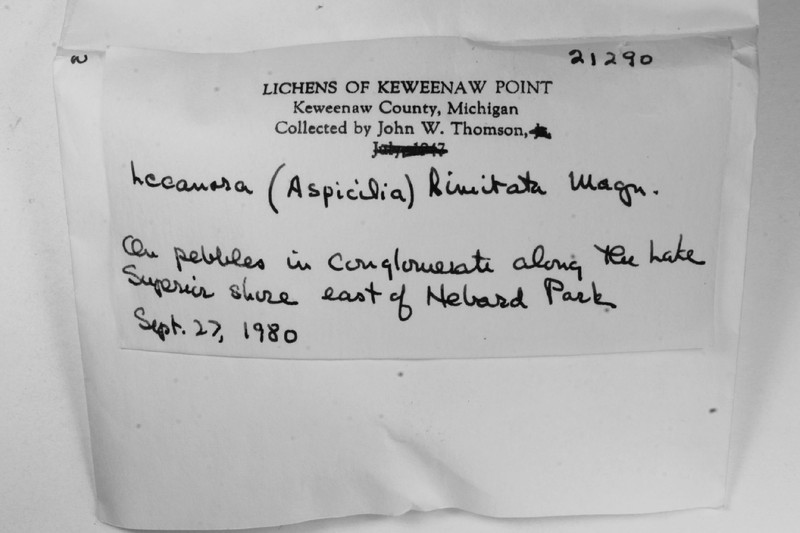 21290
LICHENS OF KEWEENAW POINT
Keweenaw County, Michigan
Collected by John W. Thomson,
July, 1947
Lecanora (Aspicilia) limitata Magn.
On pebbles in conglomerate along the Lake
Superior shore east of Hebard Park
Sept. 27, 1980